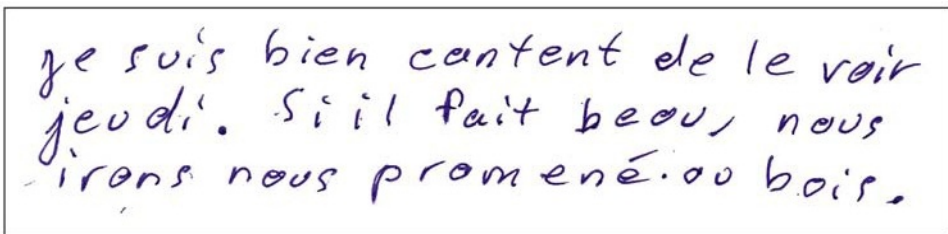 je suis bien cantent de le voir
jeudi. Si il fait beau, nous
irons nous promené. au bois.